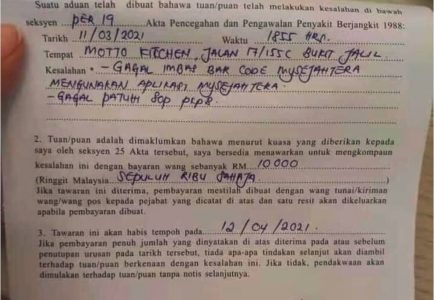 Suatu aduan telah dibuat bahawa tuan/puan telah melakukan kesalahan di bawah
seksyen PER 19 Akta Pencegahan dan Pengawalan Penyakit Berjangkit 1988:
Tarikh 11/03/2021 Waktu 1855 HRS.
Tempat MOTTO KITCHEN, JALAN 17/155C BUKIT JALIL
Kesalahan - GAGAL IMBAS BAR CODE MYSEJAHTERA
MENGUNAKAN APLIKASI MYSEJAHTERA.
- GAGAL PATUHI SOP PKPB
2. Tuan/puan adalah dimaklumkan bahawa menurut kuasa yang diberikan kepada
saya oleh seksyen 25 Akta tersebut, saya bersedia menawarkan untuk mengkompaun
kesalahan ini dengan bayaran wang sebanyak RM 10 000
(Ringgit Malaysia SEPULUH RIBU SAHAJA )
Jika tawaran ini diterima, pembayaran mestilah dibuat dengan wang tunai/kiriman
wang/wang pos kepada pejabat yang dicatat di atas dan satu resit akan dikeluarkan
apabila pembayaran dibuat.
3. Tawaran ini akan habis tempoh pada 12/04/2021.
Jika pembayaran penuh jumlah yang dinyatakan di atas diterima pada atau sebelum
penutupan urusan pada tarikh tersebut, tiada apa-apa tindakan selanjut akan diambil
terhadap tuan/puan berkenaan dengan kesalahan ini. Jika tidak, pendakwaan akan
dimulakan terhadap tuan/puan tanpa notis selanjutnya.